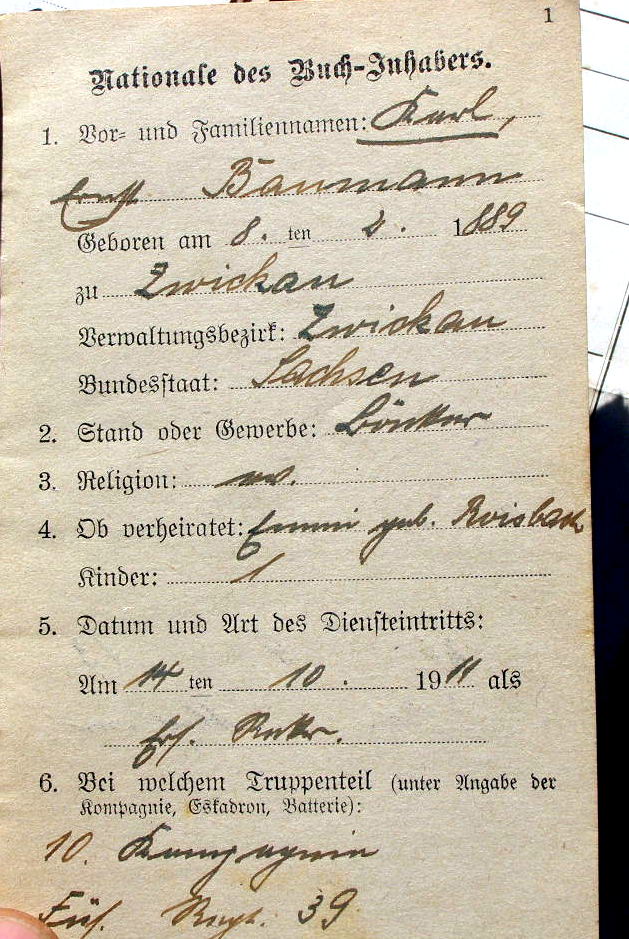 1
Nationale des Buch-Inhabers.
1. Vor- und Familiennamen: Karl,
Ernst Baumann
Geboren am 8. ten 2. 1889
zu Zwickau
Verwaltungsbezirk: Zwickau
Bundesstaat: Sachsen
2. Stand oder Gewerbe:
3. Religion: ev.
4. Ob verheiratet: Emmi geb.
Kinder: 1
5. Datum und Art des Diensteintritts:
Am 14 ten 10. 1911 als
Ers. Rekr.
6. Bei welchem Truppenteil (unter Angabe der
Kompagnie, Eskadron, Batterie):
10. Kompagnie
Füs. Regt. 39